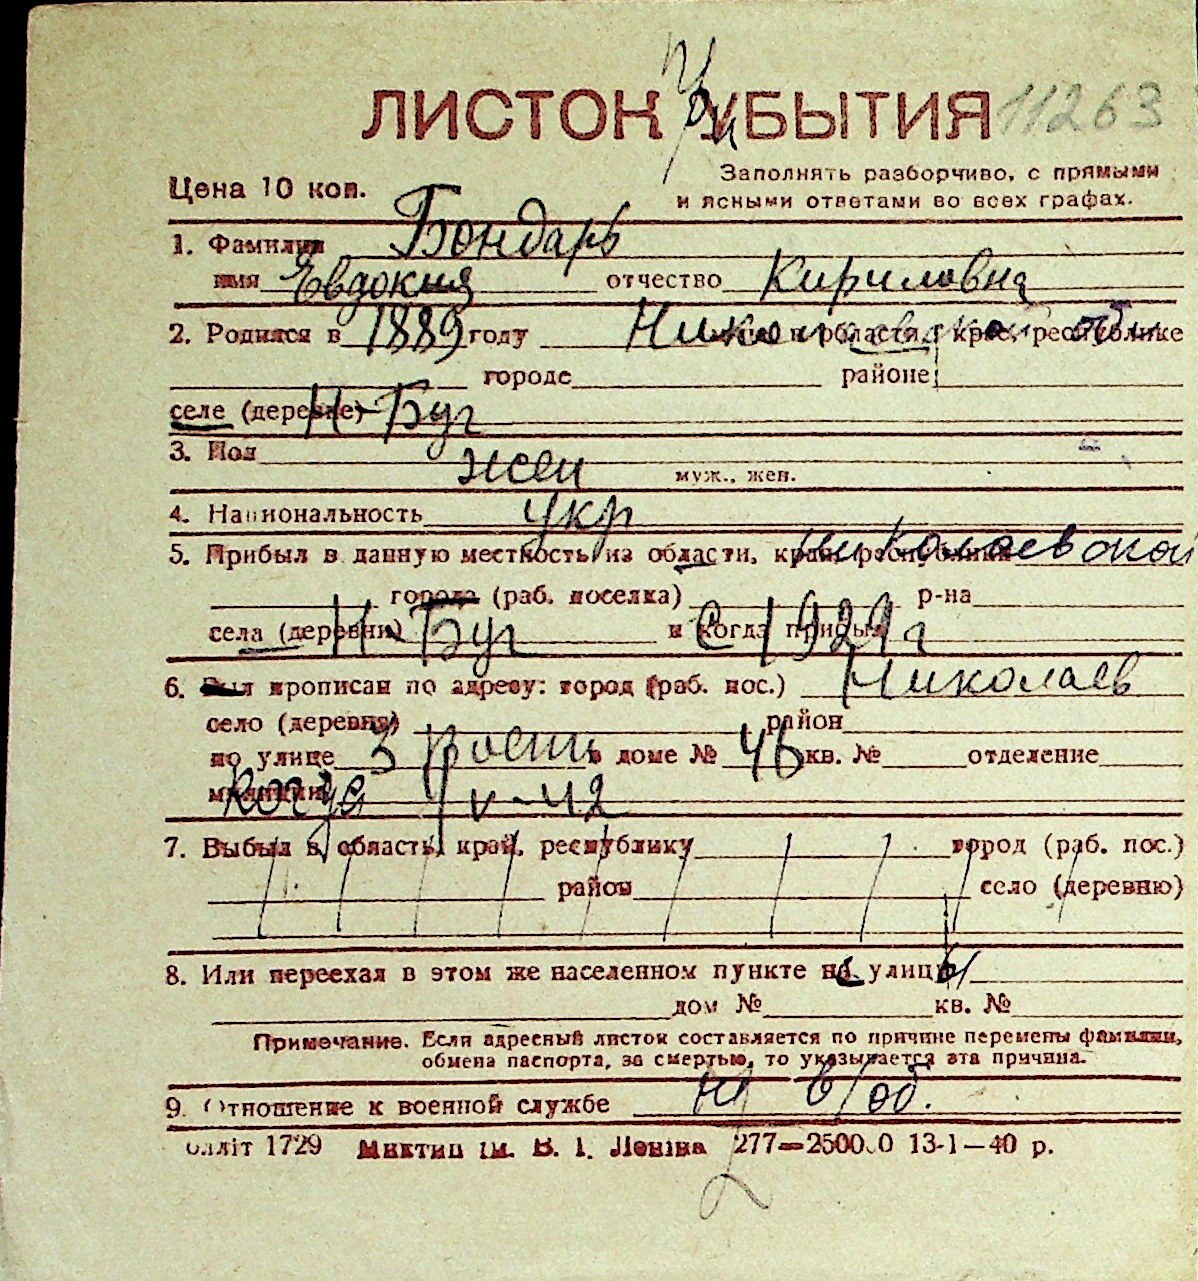 ЛИСТОК УБЫТИЯ
При
11263
Цена 10 коп.
Заполнять разборчиво, с прямыми
и ясными ответами во всех графах.
1. Фамилия Бондарь
имя Евдокия отчество Кириловна
2. Родился в 1889 году Николаевской обл области, крае, республике
городе районе
селе (деревне) Н-Буг
3. Пол жен муж., жен.
4. Национальность укр
5. Прибыл в данную местность из области, края, республики Николаевской
города (раб. поселка) р-на
села (деревни) Н-Буг и когда прибыл С 1929 г
6. Был прописан по адресу: город (раб. пос.) Николаев
село (деревня) район
по улице 3 в доме № 46 кв. № отделение
милиции когда V-42
7. Выбыл в область, край, республику город (раб. пос.)
район село (деревню)
8. Или переехал в этом же населенном пункте на улицу
дом № кв. №
Примечание. Если адресный листок составляется по причине перемены фамилии,
обмена паспорта, за смертью, то указывается эта причина.
9. Отношение к военной службе н в/об.
1729 Миктип ім. В. І. Леніна 277—2500.0 13-1—40 р.